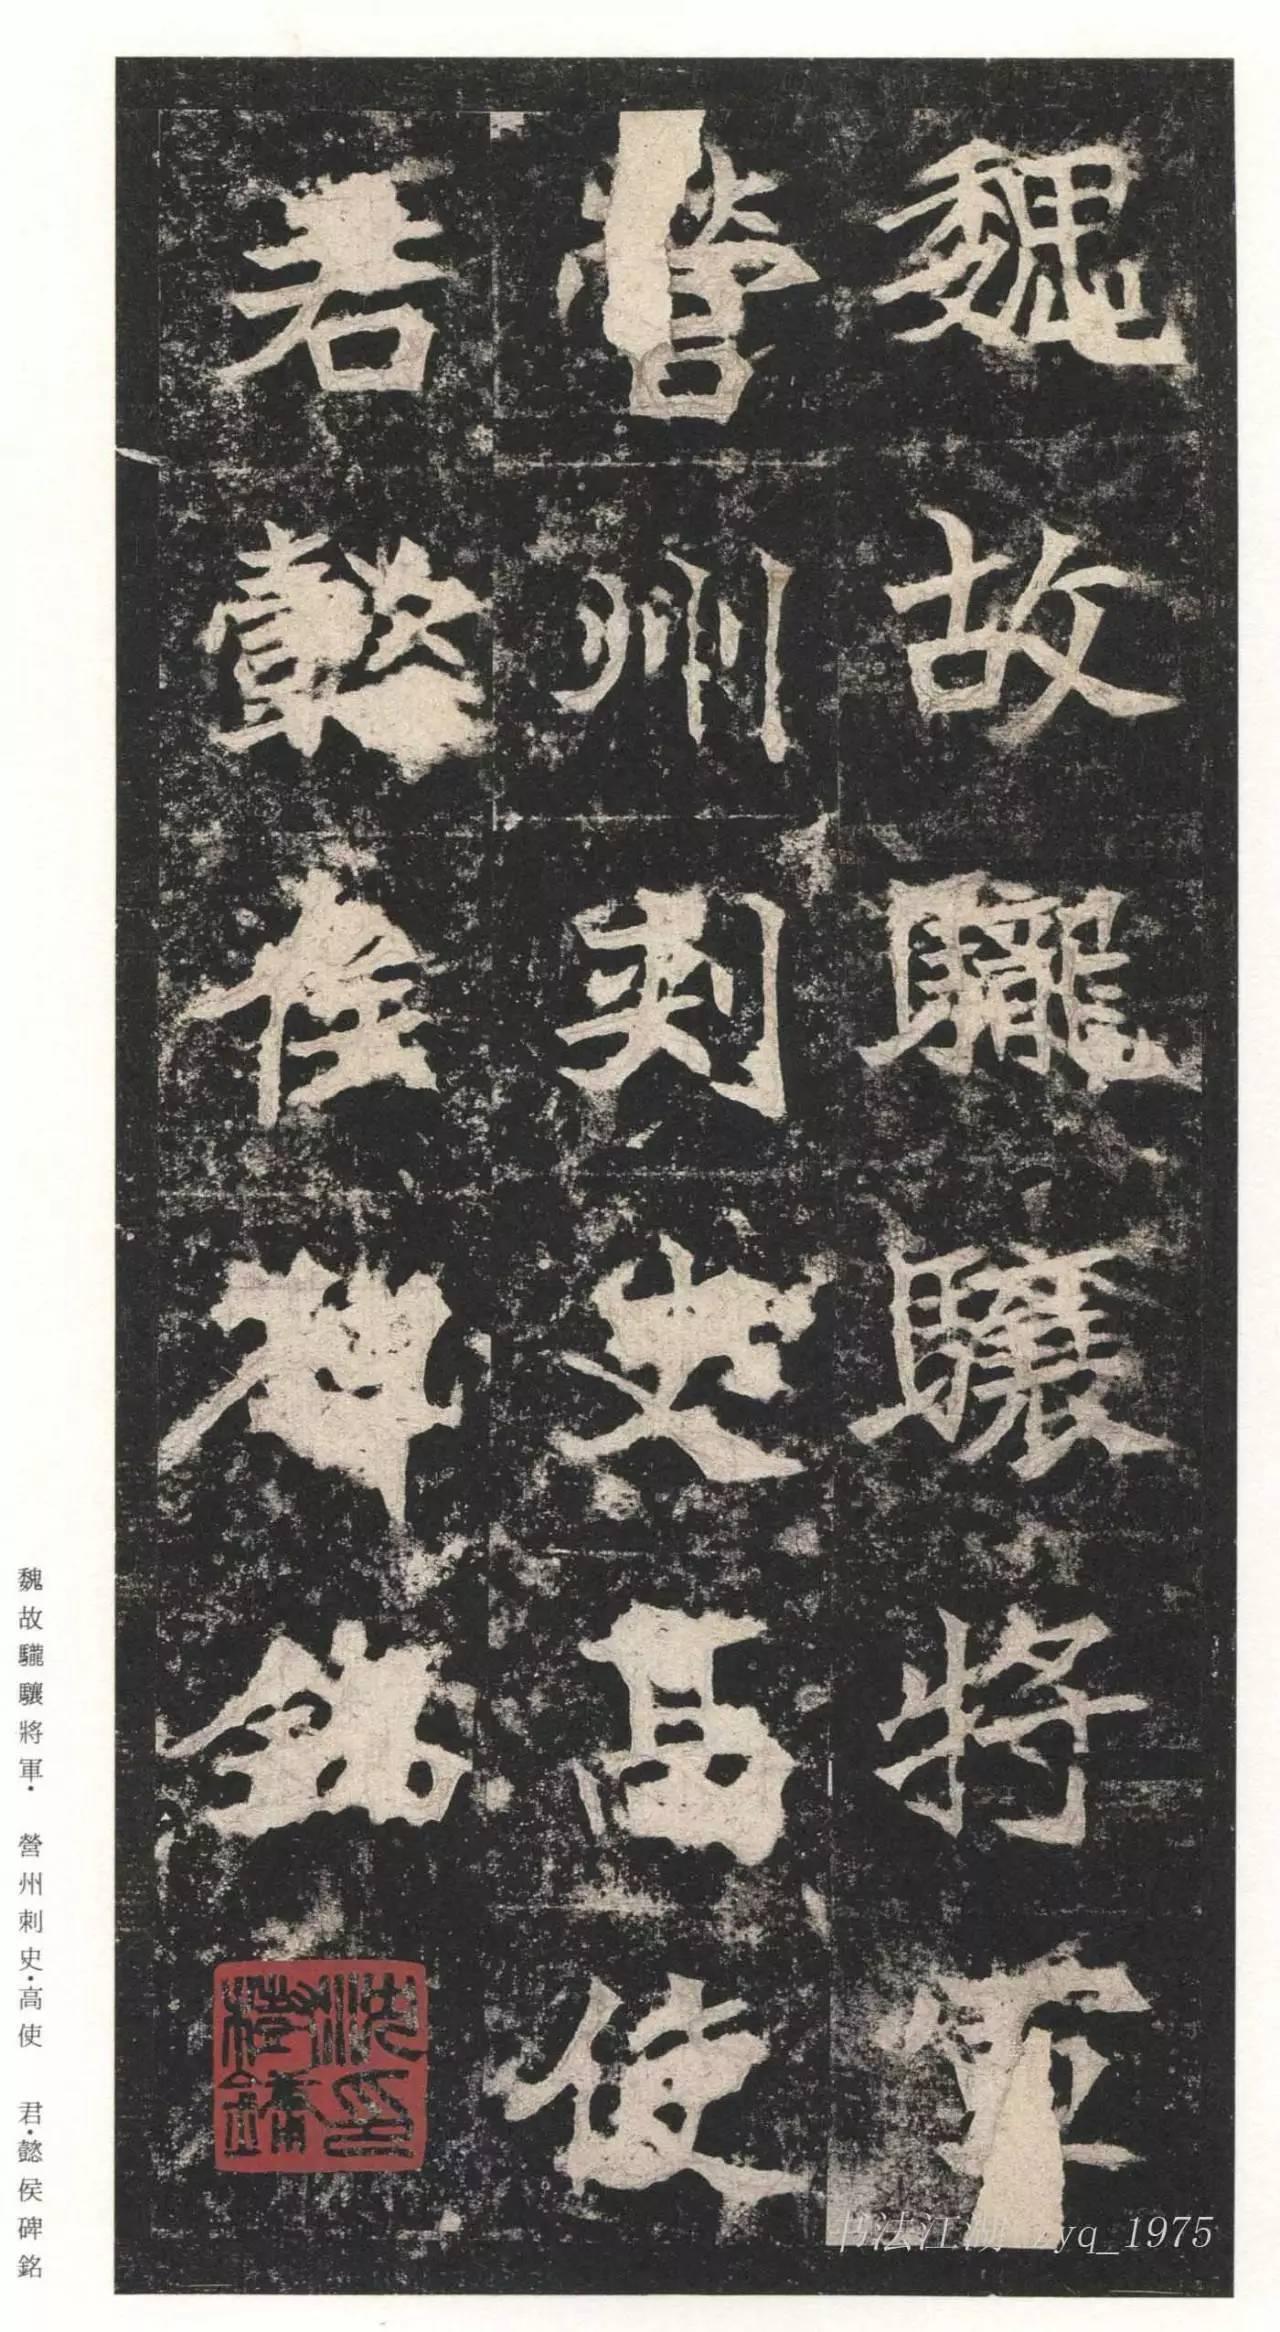 魏故驡驤將軍
營州刺史高使
君懿侯碑銘
魏故驡驤將軍・營州刺史・高使君・懿侯碑銘
书法江湖 zyq_1975